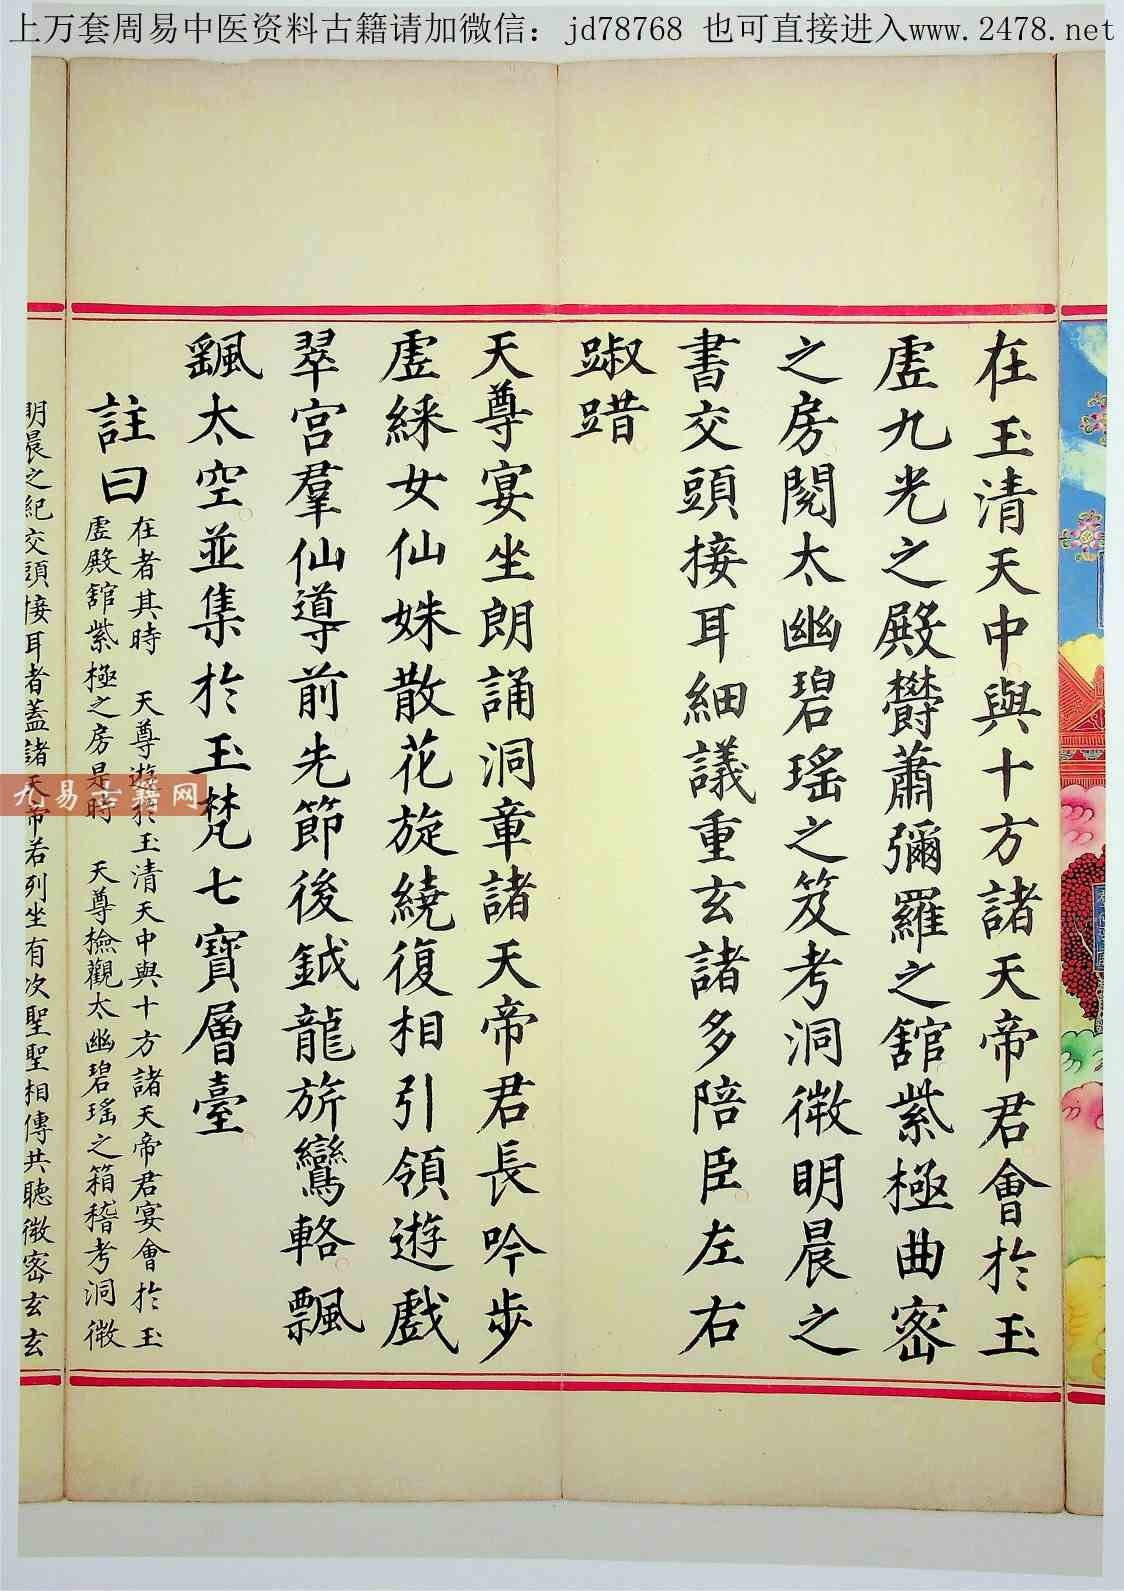 上万套周易中医资料古籍请加微信：jd78768 也可直接进入www.2478.net
在玉清天中與十方諸天帝君會於玉
虛九光之殿欝蕭彌羅之舘紫極曲密
之房閱太幽碧瑤之笈考洞微明晨之
書交頭接耳細議重玄諸多陪臣左右
踧踖
天尊宴坐朗誦洞章諸天帝君長吟步
虛綵女仙姝散花旋繞復相引領遊戲
翠宮羣仙導前先節後鉞龍旂鸞輅飄
飖太空並集於玉梵七寶層臺
註曰
在者其時 天尊遊於玉清天中與十方諸天帝君宴會於玉
虛殿舘紫極之房是時 天尊撿觀太幽碧瑤之箱稽考洞微
明晨之紀交頭接耳者蓋諸天帝君列坐有次聖聖相傳共聽微密玄玄
九易古籍网